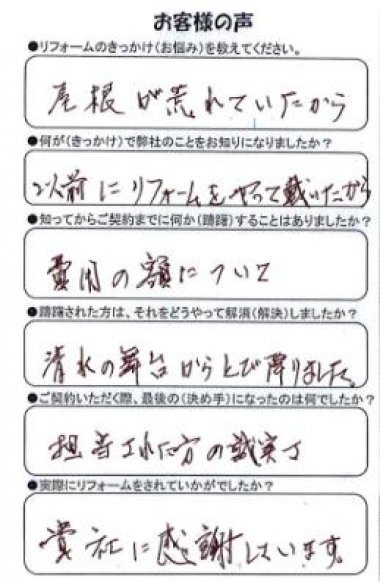 お客様の声
●リフォームのきっかけ(お悩み)を教えてください。
屋根が荒れていたから
●何が(きっかけ)で弊社のことをお知りになりましたか?
以前にリフォームをやって戴いたから
●知ってからご契約までに何か(躊躇)することはありましたか?
費用の額について
●躊躇された方は、それをどうやって解消(解決)しましたか?
清水の舞台からとび降りました。
●ご契約いただく際、最後の(決め手)になったのは何でしたか?
担当された方の誠実さ
●実際にリフォームをされていかがでしたか?
貴社に感謝しています。